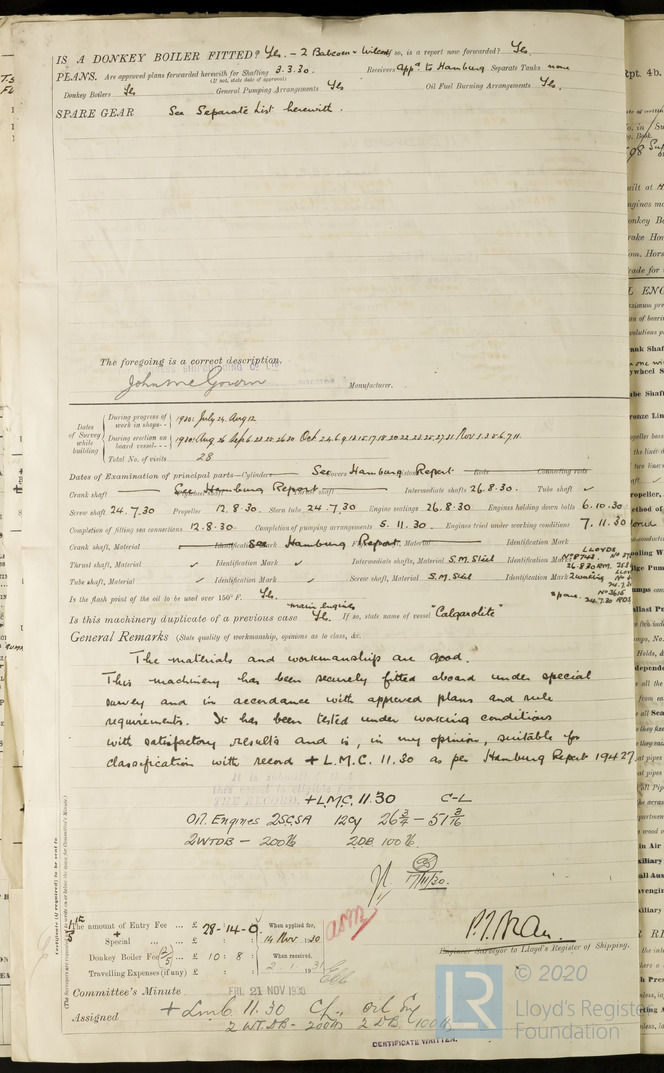 IS A DONKEY BOILER FITTED? Yes. – 2 Babcock & Wilcox If so, is a report now forwarded? Yes.
PLANS. Are approved plans forwarded herewith for Shafting 3.3.30. Receivers Appd to Hamburg Separate Tanks none
(If not, state date of approval)
Donkey Boilers Yes General Pumping Arrangements Yes Oil Fuel Burning Arrangements Yes.
SPARE GEAR See Separate List herewith.
The foregoing is a correct description,
John McGovern Manufacturer.
Dates of Survey while building
During progress of work in shops-- 1930: July 24. Aug 12
During erection on board vessel---
Total No. of visits 28
Dates of Examination of principal parts—Cylinders See Hamburg Report Rods Connecting rods
Crank shaft See Hamburg Report Intermediate shafts 26.8.30. Tube shaft ✓
Screw shaft 24.7.30 Propeller 12.8.30. Stern tube 24.7.30 Engine seatings 26.8.30 Engines holding down bolts 6.10.30
Completion of fitting sea connections 12.8.30 Completion of pumping arrangements 5.11.30. Engines tried under working conditions 7.11.30
Crank shaft, Material See Hamburg Report Identification Mark
Thrust shaft, Material ✓ Identification Mark ✓ Intermediate shafts, Material S.M. Steel Identification Mark
Tube shaft, Material ✓ Identification Mark ✓ Screw shaft, Material S.M. Steel Identification Mark
Is the flash point of the oil to be used over 150° F. Yes.
main engines
Is this machinery duplicate of a previous case Yes. If so, state name of vessel "Calgarolite"
General Remarks (State quality of workmanship, opinions as to class, &c.
The materials and workmanship are good.
This machinery has been securely fitted aboard under special
survey and in accordance with approved plans and rule
requirements. It has been tested under working conditions
with satisfactory results and is, in my opinion, suitable for
classification with record + L.M.C. 11.30 as per Hamburg Report 19427.
It is submitted that
this vessel is eligible for
THE RECORD. + LMC. 11.30 C-L
Oil Engines 2SCSA 12Cy 26 3/4 – 51 3/16
2WTDB – 200 lb 2DB. 100 lb.
17/11/30.
The amount of Entry Fee ... £ 28-14-0 When applied for,
Special ... ... £ : : 14 Nov 1930
Donkey Boiler Fee £ 10 : 8 : When received,
Travelling Expenses (if any) £ : : 2.1.1931
Engineer Surveyor to Lloyd's Register of Shipping.
Committee's Minute FRI. 21 NOV 1930
Assigned + Lmb 11.30 CL. Oil Eng
2 W.T.D.B - 200 lb 2 D.B. 100 lb
CERTIFICATE WRITTEN.
LR © 2020
Lloyd's Register
Foundation